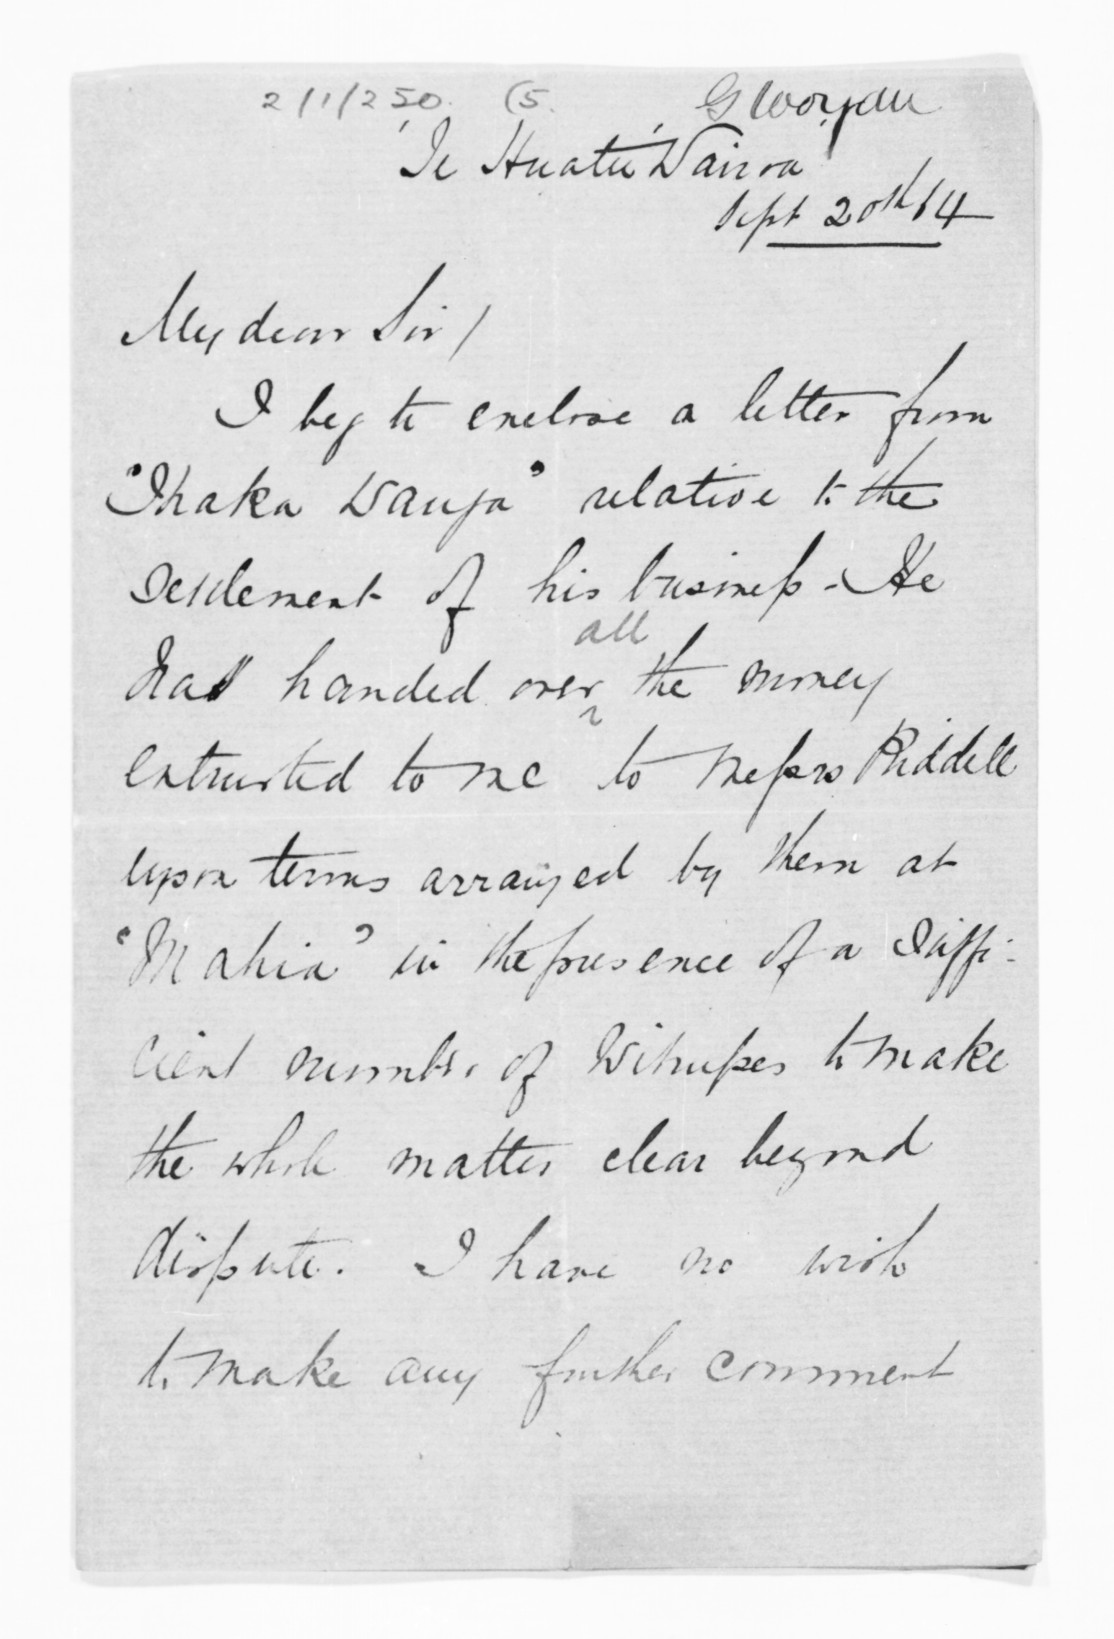 2/1/250. (5.
G Worgan
"Te Huatu" Wairoa
Sept 20th 64
My dear Sir/
I beg to enclose a letter from
"Ihaka Wanga" relative to the
Settlement of his business - He
has handed over all the money
entrusted to me to Messrs Riddell
upon terms arranged by them at
"Mahia" in the presence of a Suffi-
cient number of Witnesses to make
the whole matter clear beyond
dispute. I have no wish
to make any further comment